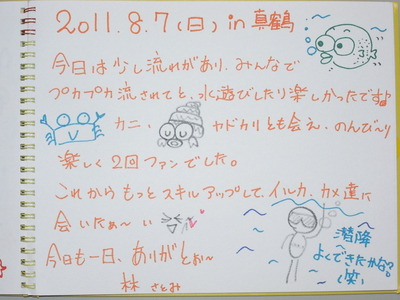 2011.8.7(日) in 真鶴
今日は少し流れがあり、みんなで
プカプカ流されてと、水遊びしたり楽しかったです♪
カニ、ヤドカリとも会え、のんび〜り
楽しく2回ファンでした。
これからもっとスキルアップして、イルカ、カメ達に
会いたぁ〜い
今日も一日、ありがとぉ〜
林 さとみ
潜降
よくできたかな?
(笑)